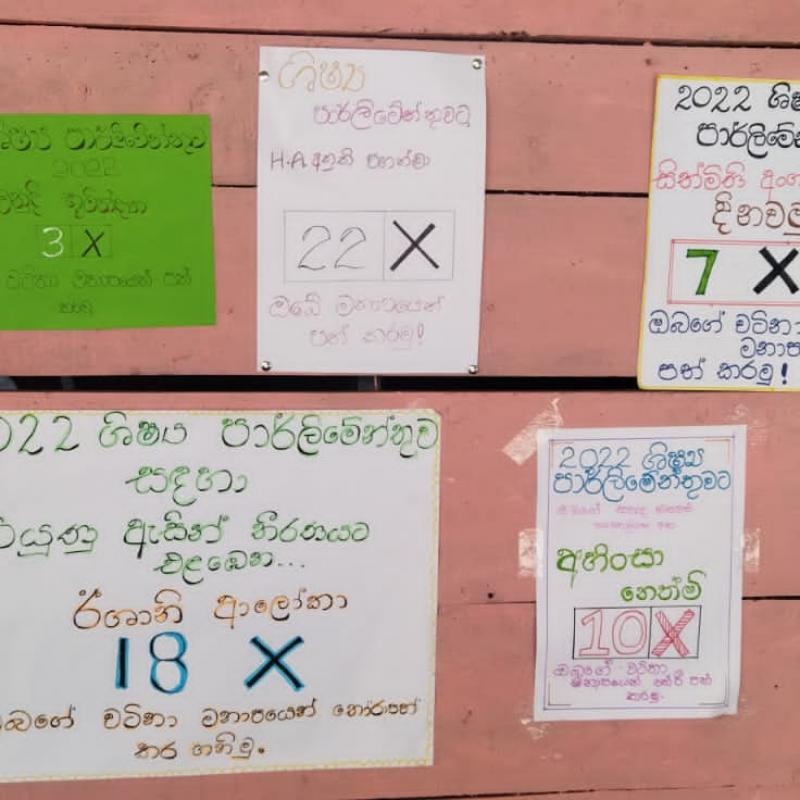 ශිෂ්‍ය පාර්ලිමේන්තුව
2022
3 X
ශිෂ්‍ය
පාර්ලිමේන්තුවට
22 X
ඔබේ මනාපයෙන්
පත් කරමු!
2022 ශිෂ්‍ය
පාර්ලිමේන්
සිත්මිණි
දිනවමු
7 X
ඔබගේ වටිනා
මනාප
පත් කරමු!
2022 ශිෂ්‍ය පාර්ලිමේන්තුව
සඳහා
තියුණු ඇසින් තීරණයට
එළඹෙන...
ඊශානි ආලෝකා
18 X
ඔබගේ වටිනා මනාපයෙන් තෝරාපත්
කර ගනිමු.
2022 ශිෂ්‍ය
පාර්ලිමේන්තුවට
අහිංසා
නෙත්මි
10 X
ඔබගේ වටිනා
මනාපයෙන් තේරී පත්
කරමු.